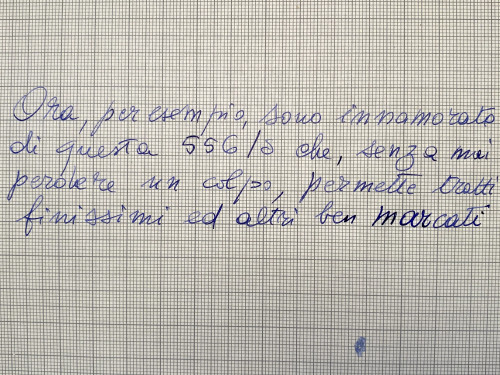 Ora, per esempio, sono innamorato
di questa 556/S che, senza mai
perdere un colpo, permette tratti
finissimi ed altri ben marcati